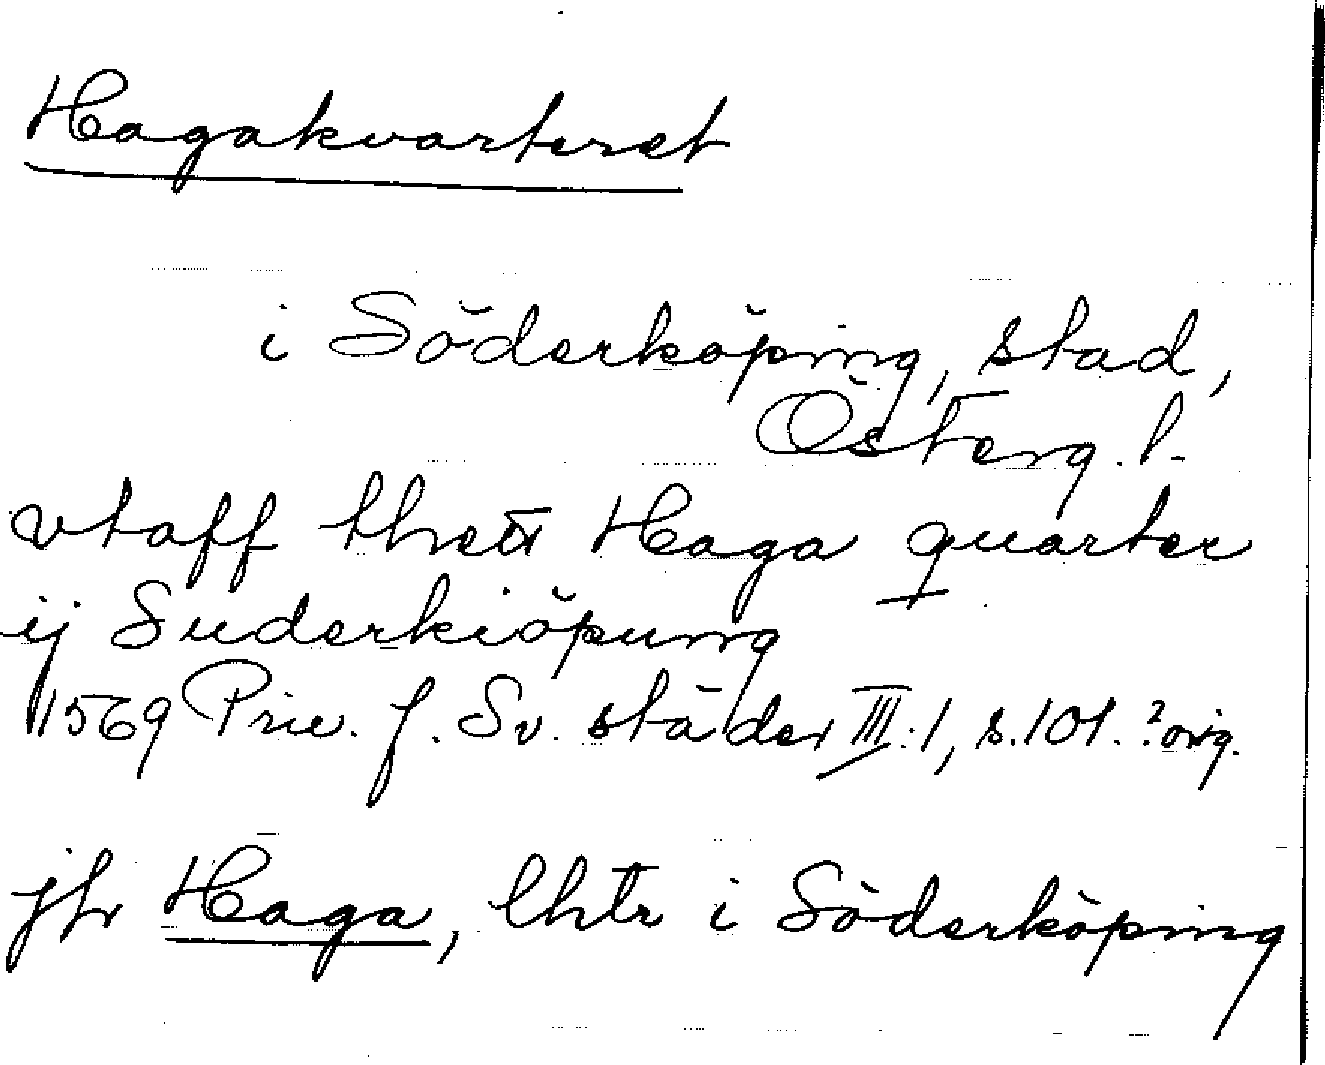 Hagakvarteret
i Söderköping, stad,
Österg. l.
vtaff thett Haga quarter
ij Suderkiöpung
1569 Priv. f. Sv. städer III:1, s. 101. ?orig.
jfr Haga, lhtr i Söderköping